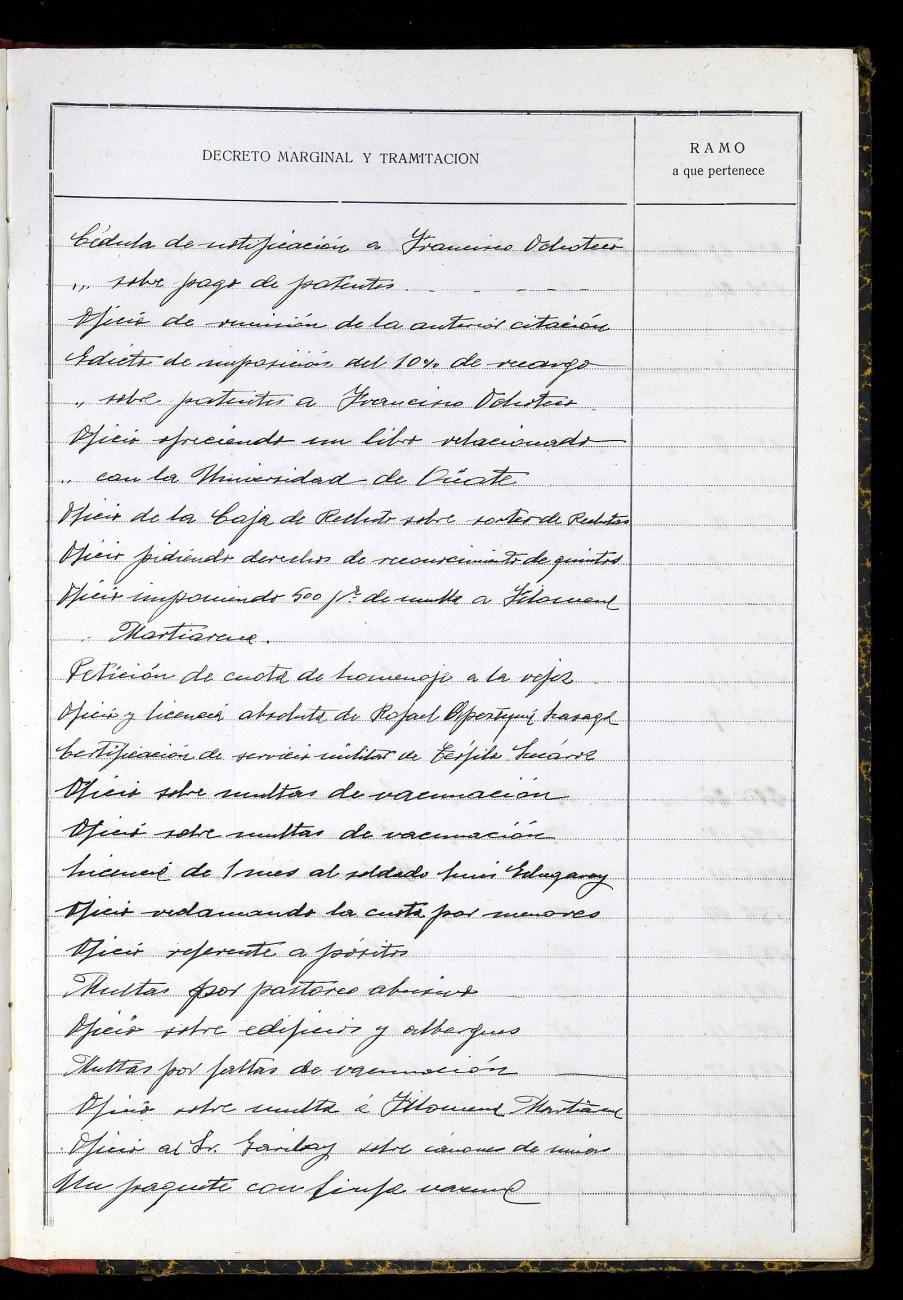 DECRETO MARGINAL Y TRAMITACION
RAMO
a que pertenece
Cédula de notificación a Francisco Ochoteco
„ sobre pago de patentes
Oficio de remisión de la anterior citación
Edicto de imposición del 10% de recargo
„ sobre patentes a Francisco Ochoteco
Oficio ofreciendo un libro relacionado
„ con la Universidad de Oñate
Oficio de la Caja de Recluta sobre sorteo de Reclutas
Oficio pidiendo derechos de reconocimiento de quintos
Oficio imponiendo 500 pts de multa a Filomena
Martiarena.
Petición de cuota de homenaje a la vejez
Oficio y licencia absoluta de Rafael
Certificación de servicio militar de
Oficio sobre multas de vacunación
Oficio sobre multas de vacunación
Licencia de 1 mes al soldado Luis Echegaray
Oficio reclamando la cuota por menores
Oficio referente a pósitos
Multas por pastoreo abusivo
Oficio sobre edificios y albergues
Multas por faltas de vacunación
Oficio sobre multa á Filomena
Oficio al Sr. Garibay sobre cánones de minas
Un paquete con linfa vacuna